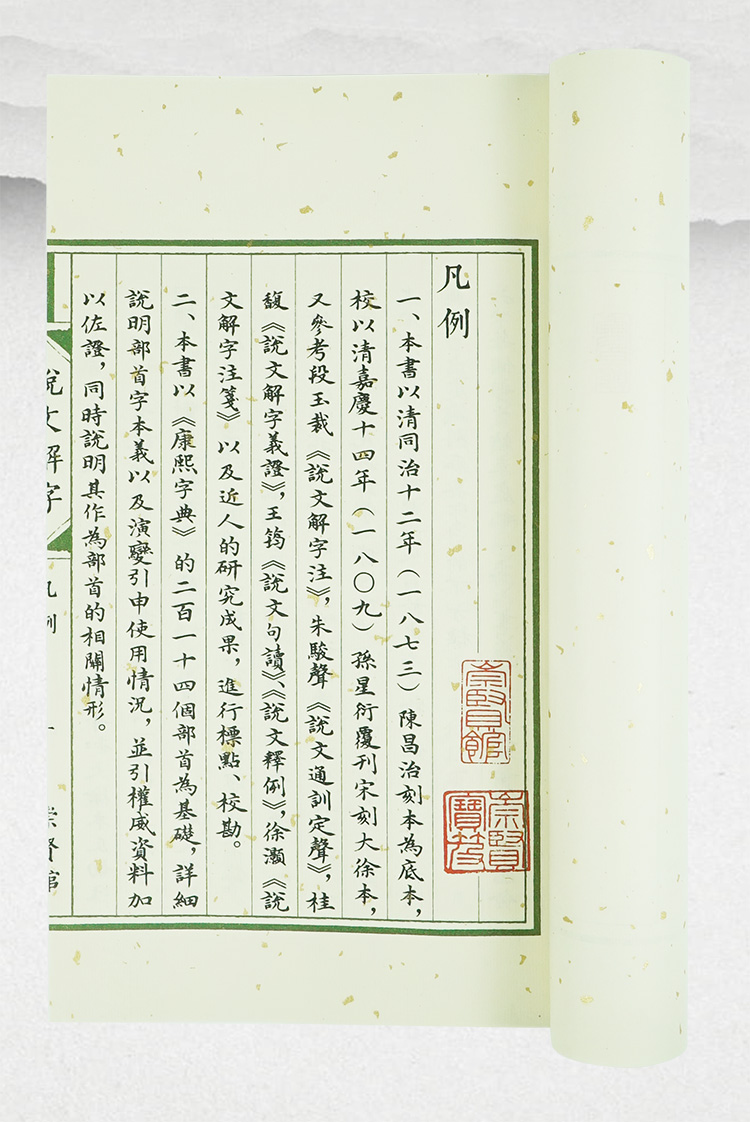 凡例
一、本書以清同治十二年（一八七三）陳昌治刻本為底本，
校以清嘉慶十四年（一八〇九）孫星衍覆刊宋刻大徐本，
又參考段玉裁《說文解字注》，朱駿聲《說文通訓定聲》，桂
馥《說文解字義證》，王筠《說文句讀》、《說文釋例》，徐灝《說
文解字注箋》以及近人的研究成果，進行標點、校勘。
二、本書以《康熙字典》的二百一十四個部首為基礎，詳細
說明部首字本義以及演變引申使用情況，並引權威資料加
以佐證，同時說明其作為部首的相關情形。
說文解字
凡例
一
崇賢館
崇賢館
崇賢
寶笈